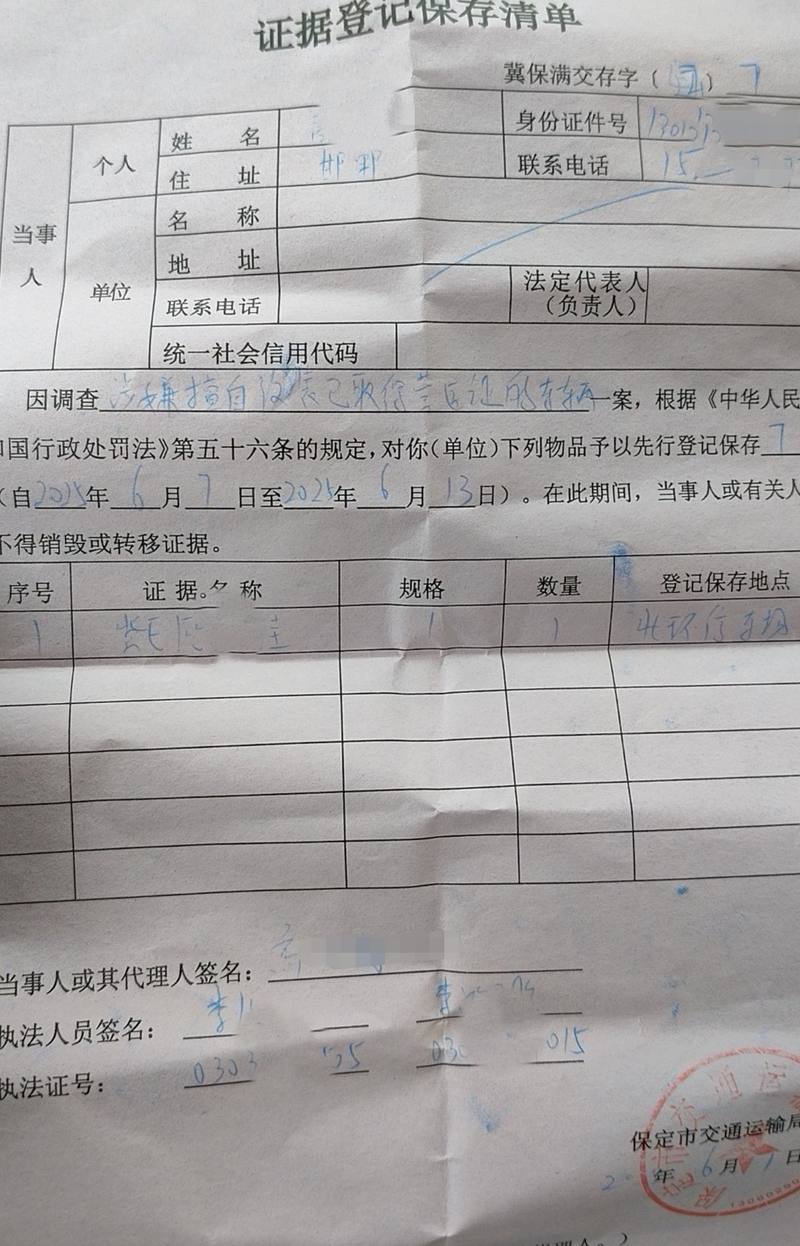 证据登记保存清单
冀保满交存字（ ）7
当事人
个人
姓 名
身份证件号
住 址 邯郸
联系电话 15
单位
名 称
地 址
联系电话
法定代表人（负责人）
统一社会信用代码
因调查涉嫌擅自改装已取得营运证的车辆一案，根据《中华人民
国行政处罚法》第五十六条的规定，对你（单位）下列物品予以先行登记保存7
（自2025年6月7日至2025年6月13日）。在此期间，当事人或有关人
不得销毁或转移证据。
序号 证据名称 规格 数量 登记保存地点
1 1 1 停车场
当事人或其代理人签名：
执法人员签名：李
执法证号：0303 015
保定市交通运输局
年6月 日